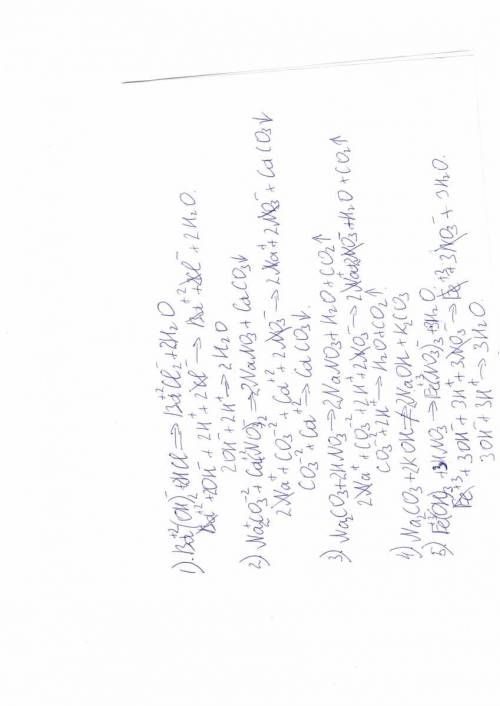 1). Ba⁺²(OH)₂⁻ + 2HCl => BaCl₂ + 2H₂O
Ba⁺² + 2OH⁻ + 2H⁺ + 2Cl⁻ -> Ba⁺² + 2Cl⁻ + 2H₂O.
2OH⁻ + 2H⁺ -> 2H₂O
2) Na₂⁺CO₃⁻² + Ca(NO₃)₂ -> 2NaNO₃ + CaCO₃↓
2Na⁺ + CO₃⁻² + Ca⁺² + 2NO₃⁻ -> 2Na⁺ + 2NO₃⁻ + CaCO₃↓
CO₃⁻² + Ca⁺² => CaCO₃↓.
3) Na₂CO₃ + 2HNO₃ -> 2NaNO₃ + H₂O + CO₂↑
2Na⁺ + CO₃⁻² + 2H⁺ + 2NO₃⁻ -> 2Na⁺ + 2NO₃⁻ + H₂O + CO₂↑
CO₃⁻² + 2H⁺ -> H₂O + CO₂↑
4) Na₂CO₃ + 2KOH ≠ 2NaOH + K₂CO₃
5) Fe(OH)₃ + 3HNO₃ -> Fe(NO₃)₃ + 3H₂O
Fe⁺³ + 3OH⁻ + 3H⁺ + 3NO₃⁻ -> Fe⁺³ + 3NO₃⁻ + 3H₂O.
3OH⁻ + 3H⁺ -> 3H₂O.